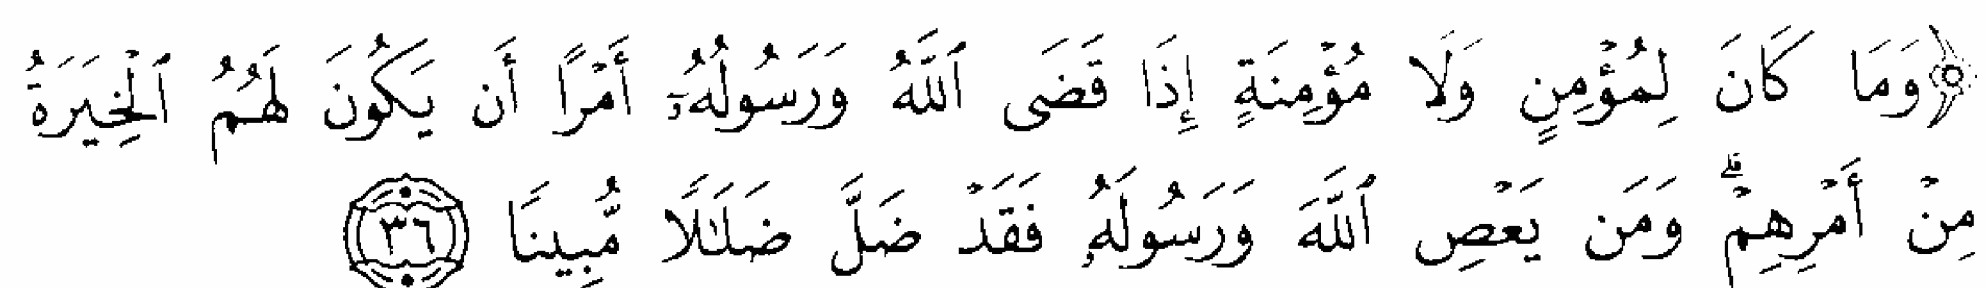 ﴿وَمَا كَانَ لِمُؤْمِنٍ وَلَا مُؤْمِنَةٍ إِذَا قَضَى ٱللَّهُ وَرَسُولُهُۥٓ أَمْرًا أَن يَكُونَ لَهُمُ ٱلْخِيَرَةُ
مِنْ أَمْرِهِمْۗ وَمَن يَعْصِ ٱللَّهَ وَرَسُولَهُۥ فَقَدْ ضَلَّ ضَلَٰلًا مُّبِينًا ٣٦